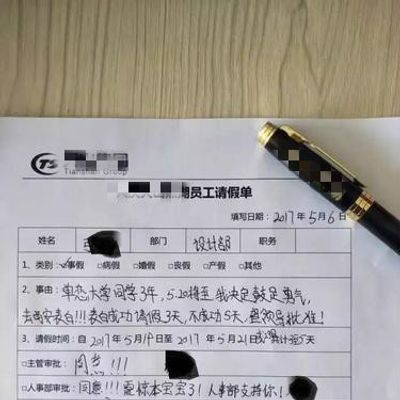 TS
Tianshan Group
员工请假单
填写日期：2017年5月6日
姓名 部门 设计部 职务
1、类别：☑事假 □病假 □婚假 □丧假 □产假 □其他
2、事由：单恋大学同学3年，5.20将至 我决定鼓足勇气，
去西安表白!!!表白成功请假3天，不成功5天，望领导批准！
3、请假时间：自2017年5月19日至2017年5月21日 共计 天
□主管审批：同意!!!
□人事部审批：同意!!! 要标本宝宝31 人事部支持你！